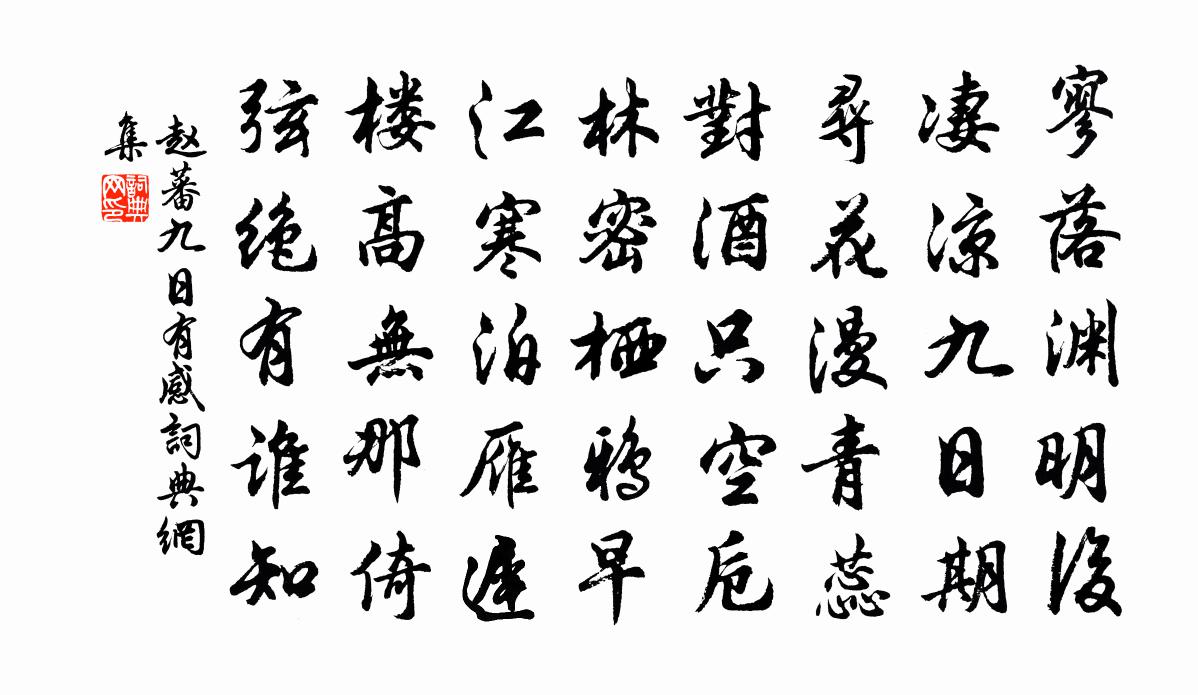 寥落渊明後
凄凉九日期
尋花漫青蕊
對酒只空卮
林密栖鸦早
江寒泊雁遲
楼高無那倚
弦绝有誰知
赵蕃九日有感詞典網
集
詞典
网印